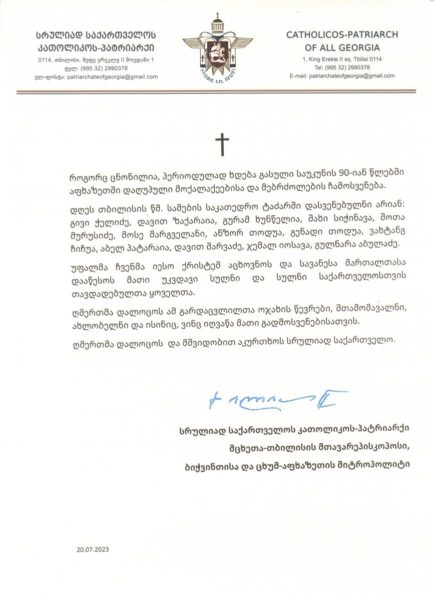 სრულიად საქართველოს
კათოლიკოს-პატრიარქი
0114, თბილისი, მეფე ერეკლე II მოედანი 1
ტელ: (995 32) 2990378
ელ-ფოსტა: patriarchateofgeorgia@gmail.com
CATHOLICOS-PATRIARCH
OF ALL GEORGIA
1, King Erekle II sq. Tbilisi 0114
Tel: (995 32) 2990378
E-mail: patriarchateofgeorgia@gmail.com
როგორც ცნობილია, პერიოდულად ხდება გასული საუკუნის 90-იან წლებში
აფხაზეთში დაღუპული მოქალაქეებისა და მებრძოლების ჩამოსვენება.
დღეს თბილისის წმ. სამების საკათედრო ტაძარში დასვენებულნი არიან:
გივი ქელიძე, დავით ზაქარაია, გურამ ხუნწელია, შახი სიჭინავა, შოთა
მურუსიძე, მოსე მარგველანი, ანზორ თოდუა, გენადი თოდუა, ვახტანგ
ჩიჩუა, აბელ პატარაია, დავით შარვაძე, ჯემალ იოსავა, გულნარა აბულაძე.
უფალმა ჩვენმა იესო ქრისტემ აცხოვნოს და სავანესა მართალთასა
დააწესოს მათი უკვდავი სულნი და სულნი საქართველოსთვის
თავდადებულთა ყოველთა.
ღმერთმა დალოცოს ამ გარდაცვლილთა ოჯახის წევრები, შთამომავალნი,
ახლობელნი და ისინიც, ვინც იღვაწა მათი გადმოსვენებისათვის.
ღმერთმა დალოცოს და მშვიდობით აკურთხოს სრულიად საქართველო.
სრულიად საქართველოს კათოლიკოს-პატრიარქი
მცხეთა-თბილისის მთავარეპისკოპოსი,
ბიჭვინთისა და ცხუმ-აფხაზეთის მიტროპოლიტი
20.07.2023